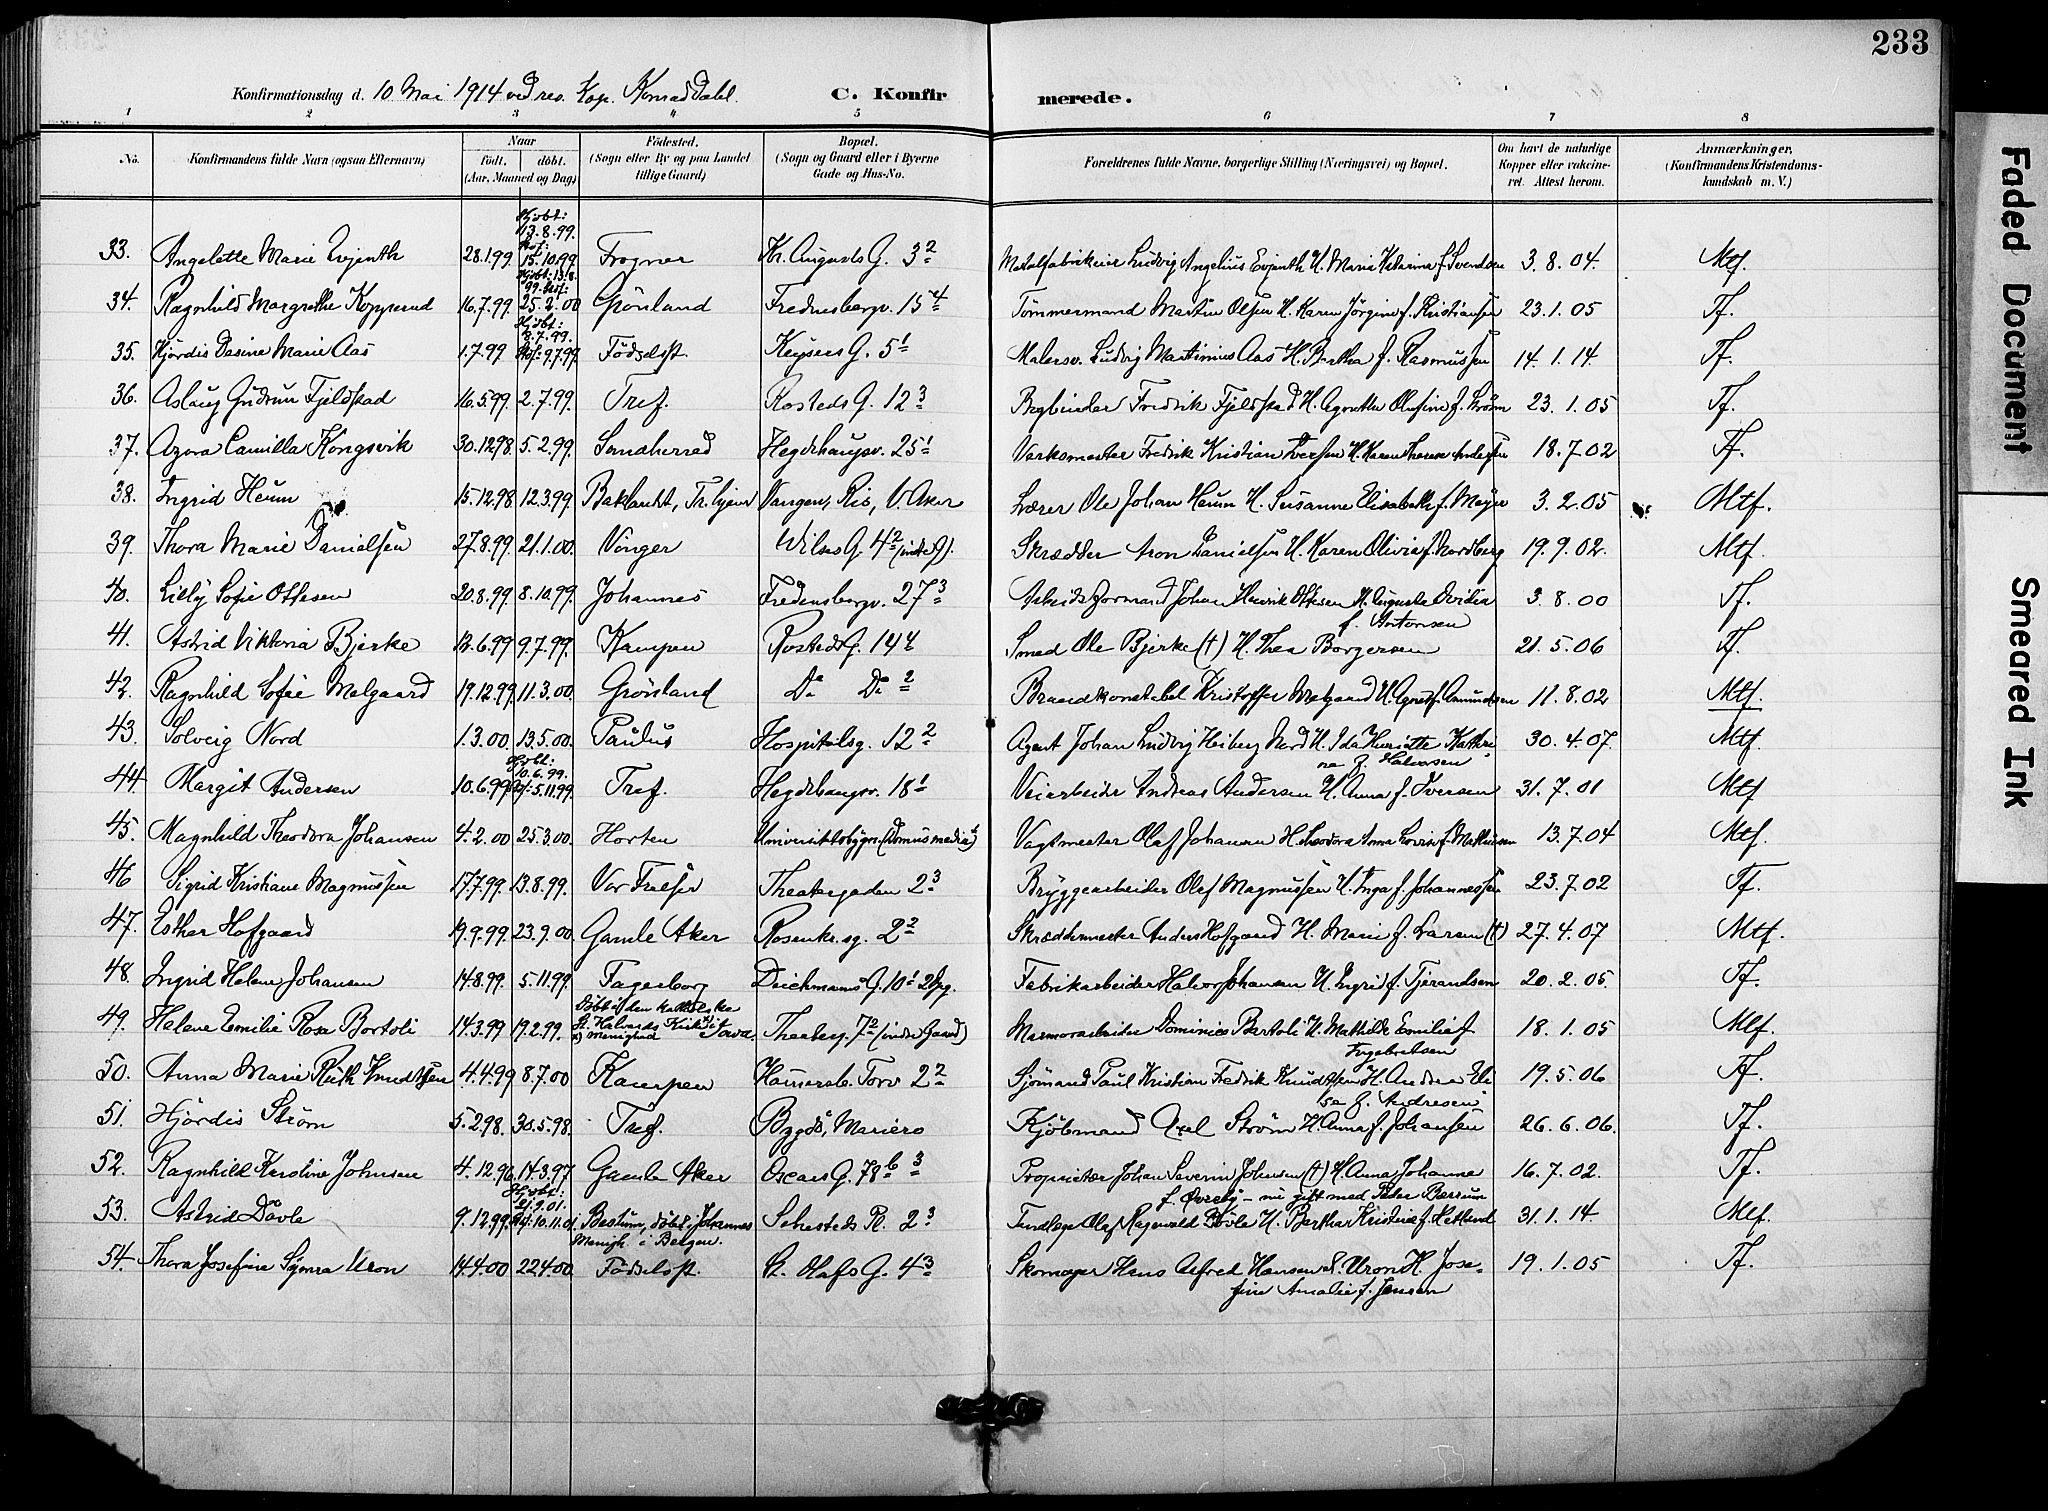 233
Konfirmationsdag d. 10 Mai 1914 ved res. Kap. Konrad Dahl. C. Konfirmerede.
1 2 3 4 5 6 7 8
No. Konfirmandens fulde Navn (ogsaa Efternavn) Naar födt. döbt. (Aar, Maaned og Dag) Födested. (Sogn eller By og paa Landet tillige Gaard) Bopæl. (Sogn og Gaard eller i Byerne Gade og Hus-No. Forældrenes fulde Navne, borgerlige Stilling (Næringsvei) og Bopæl. Om havt de naturlige Kopper eller vakcineret. Attest herom. Anmærkninger. (Konfirmandens Kristendomskundskab m. V.)
Hjdbt: 13.8.99. Stof:
33. Angelette Marie Evjenth 28.1.99 15.10.99 Frogner Kr. Augusts G. 3² Metalfabrikeier Ludvig Angelius Evjenth H. Marie Katarina f. Svendsen 3.8.04. Mtf.
Hjdbt: 13.8.99. Stof:
34. Ragnhild Margrethe Kopperud 16.7.99 25.2.00 Grönland Fredensborgv. 15⁴ Tömmermand Martin Olsen H. Karen Jörgine f. Kristiansen 23.1.05 Tf.
Hjdbt: 2.7.99.
35. Hjördis Dasine Marie Aas 1.7.99 Stof: 9.7.99 Födselsst. Keysers G. 5¹ Malersv. Ludvig Martinius Aas H. Bertha f. Rasmussen 14.1.14. Tf.
36. Aslaug Gudrun Fjeldstad 16.5.99 2.7.99. Tref. Rosteds G. 12³ Bogbinder Fredrik Fjeldstad H. Agnethe Olufine f. Ström 23.1.05 Tf.
37. Azora Camilla Kongsvik 30.12.98 5.2.99. Sandherred Hegdehaugsv. 25¹ Verksmester Fredrik Kristian Iversen H. Karen Therese Andersen 18.7.02 Tf.
38. Ingrid Heum 15.12.98 12.3.99. Baklandet, Tr.hjem Vangen, Ris, V. Aker Lærer Ole Johan Heum H. Susanne Elisabeth f. Meyer 3.2.05 Mtf.
39. Thora Marie Danielsen 27.8.99 21.1.00. Vönger Wilses G. 4² (indre G). Skrædder Aron Danielsen H. Karen Olivia f. Nordberg 19.9.02. Mtf.
40. Lilly Sofie Ottesen 20.8.99 8.10.99. Johannes Fredensborgv. 27³ Arbeidsformand Johan Henrik Ottesen H. Augusta Ovidia 3.8.00 Tf.
41. Astrid Viktoria Bjerke 12.6.99 9.7.99. Kampen Rosteds G. 14⁴ Smed Ole Bjerke (†) H. Thea Borgersen 21.5.06 Tf.
42. Ragnhild Sofie Melgaard 19.12.99 11.3.00. Grönland Do Do ² Brandkonstabel Kristoffer Melgaard H. Agnes f. Amundsen 11.8.02 Mtf.
43. Solveig Nord 1.3.00. 13.5.00. Paulus Hospitalsg. 12² Agent Johan Ludvig Heiberg Nord H. Ida Henriette Kathri- 30.4.07. Mtf.
ne f. Halvorsen
Hjdbt: 10.6.99.
44. Margit Andersen 10.6.99 Stof: 5.11.99 Tref. Hegdehaugsv. 18¹ Veiarbeider Andreas Andersen H. Anna f. Iversen 31.7.01 Mtf
45. Magnhild Theodora Johansen 4.2.00 25.3.00 Horten Universitetsbygn. (Domus media) Vagtmester Olaf Johansen H. Theodora Anna Lovise f. Mathiesen 13.7.04 Mtf.
46 Sigrid Kristiane Magnussen 17.7.99 13.8.99. Vor Frelser Theatergaden 2³ Bryggearbeider Olef Magnussen H. Inga f. Johannessen 23.7.02 Tf.
47. Esther Hofgaard 19.9.99. 23.9.00 Gamle Aker Rosenkr.sg. 2² Skræddermester Anders Hofgaard H. Marie f. Larsen (†) 27.4.07 Mtf.
48. Ingrid Helene Johansen 14.8.99 5.11.99 Fagerborg Deichmanns G. 10¹ 2 Opg. Fabrikarbeider Halvor Johansen H. Ingrid f. Tjerandsen 20.2.05. Tf.
Döbt i den katholske
49. Helene Emilie Rosa Bortoli 14.3.99 19.2.99. St. Halvards Kirke i Theaterg. 7² (indre Gaard) Marmorarbeider Dominico Bortoli H. Mathilde Emilie f. 18.1.05 Mtf.
menighed
Ingebretsen
50. Anna Marie Ruth Knudtsen 4.4.99 8.7.00 Kampen Hamersb. Torv 2² Sjömand Paul Kristian Fredrik Knudtsen H. Andrea Eli- 19.5.06 Tf.
se f. Andresen
51. Hjördis Ström 5.2.98. 30.5.98. Tref. Bygdö, Mariero Kjöbmand Axel Ström H. Anna f. Johansen 26.6.06. Tf.
52. Ragnhild Karoline Johnsen 4.12.96 14.3.97 Gamle Aker Oscars G. 78 b ³ Proprietær Johan Severin Johnsen (†) H. Anna Johanne 16.7.02. Tf.
f. Övreby - nu gift med Peder Berrum
Hjdbt: 21.9.01.
53. Astrid Dövle 9.12.99. Stof. 10.11.01 Bestum, döbt i Johannes Sehesteds Pl. 2³ Tandlæge Olaf Ragnvald Dövle H. Bertha Kristine f. Hetland 31.1.14. Mtf.
Menigh. i Bergen.
54. Thora Josefine Synøva Uron 14.4.00 22.4.00 Födselsst. St. Olafs G. 4³ Skomager Hans Alfred Hansen S. Uron H. Jose- 19.1.05 Tf.
fine Amalie f. Jensen
Faded Document
Smeared Ink